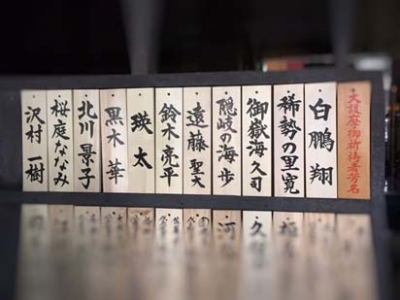 大護摩御祈祷者芳名
白鵬 翔
稀勢の里 寛
御嶽海 久司
隠岐の海 歩
遠藤 聖大
鈴木 亮平
瑛太
黒木 華
北川 景子
桜庭ななみ
沢村 一樹